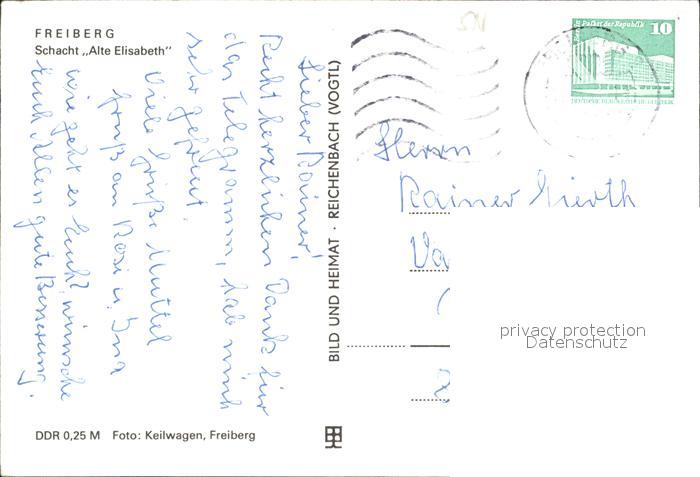 FREIBERG
Schacht „Alte Elisabeth"
Lieber Rainer!
Recht herzlichen Dank für
das Telegramm, hab mich
sehr gefreut.
Viele Grüße Muttel
Gruß an Rosi u. Ina
wie geht es Euch, wünsche
Euch Allen gute Besserung.
DDR 0,25 M Foto: Keilwagen, Freiberg
BILD UND HEIMAT · REICHENBACH (VOGTL)
Palast der Republik 10
DEUTSCHE DEMOKRATISCHE REPUBLIK
Herrn
Rainer Vieroth
privacy protection
Datenschutz